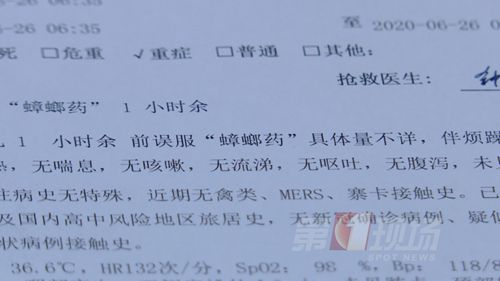 -26 06:35
26 06:35 至 2020-06-26 0
死 □危重 √重症 □普通 □其他:
抢救医生:
“蟑螂药” 1 小时余
1 小时余 前误服“蟑螂药”具体量不详，伴烦躁
热，无喘息，无咳嗽，无流涕，无呕吐，无腹泻，未
往病史无特殊，近期无禽类、MERS、寨卡接触史。已
及国内高中风险地区旅居史，无新冠确诊病例、疑似
状病例接触史。
第1现场
SPOT NEWS
36.6℃，HR132次/分，SpO2: 98 %，Bp: 118/8